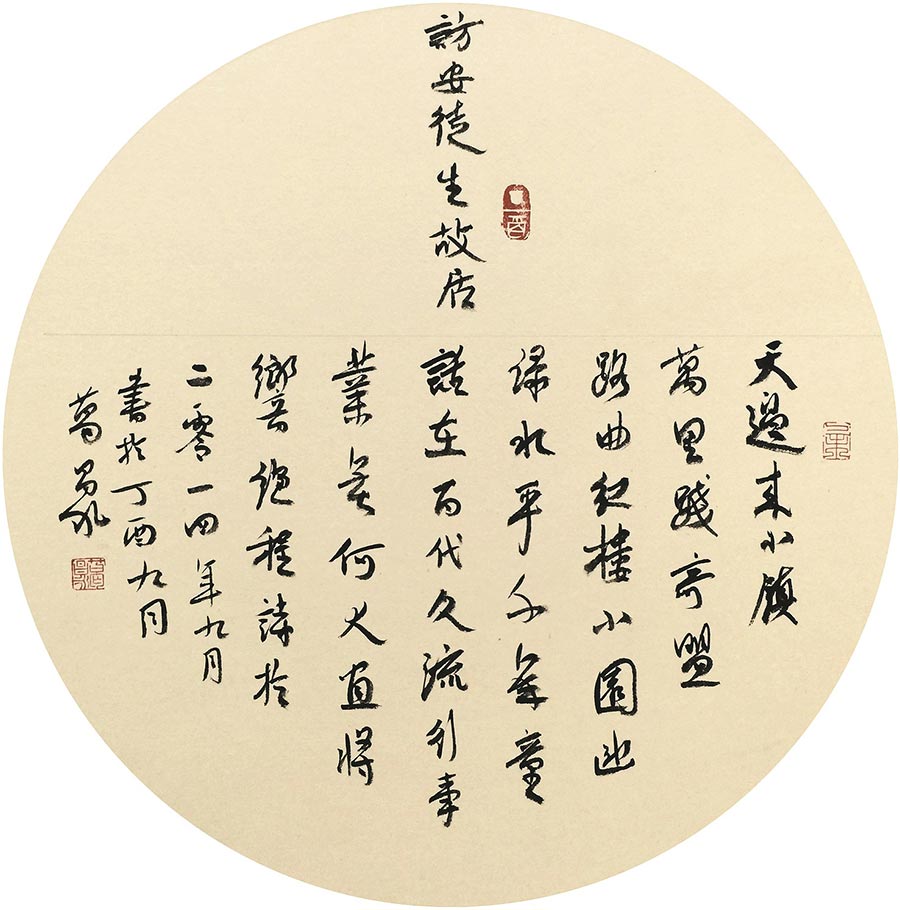 訪安徒生故居
天邊來小鎮
萬里踐奇盟
路曲紅樓小園迎
綠水平千年童
話在百代久流行事
業無何大直將
響絕程詩於
二零一四年九月
書於丁酉九月
葛昌永